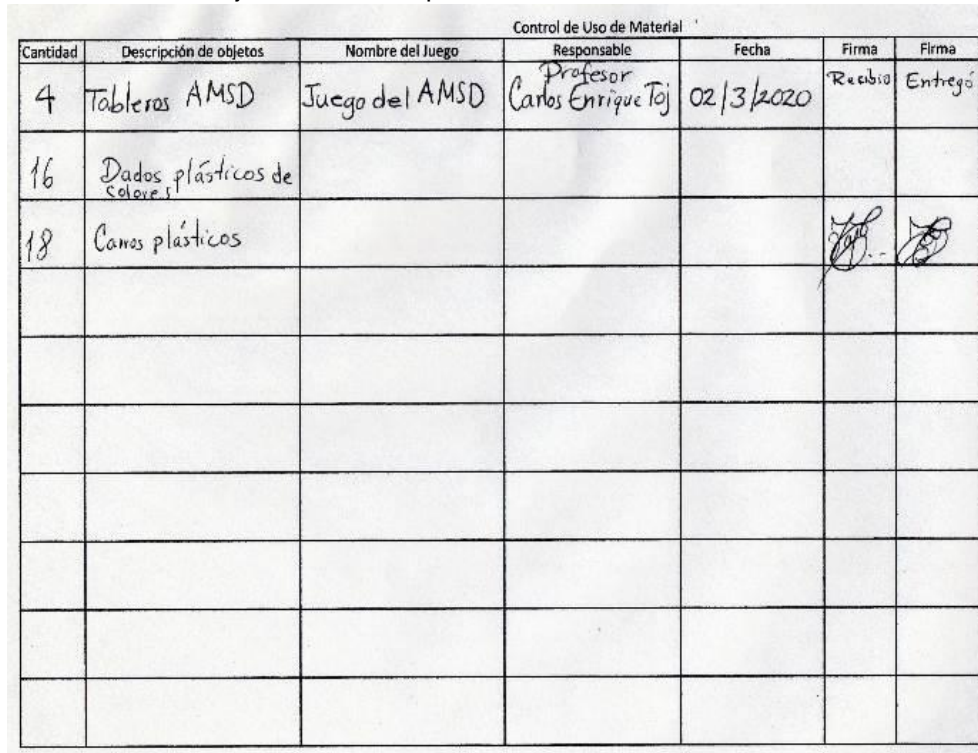 Control de Uso de Material
Cantidad Descripción de objetos Nombre del Juego Responsable Fecha Firma Firma
4 Tableros AMSD Juego del AMSD Profesor Carlos Enrique Toj 02/3/2020 Recibio Entregó
16 Dados plásticos de
colores
18 Carros plásticos